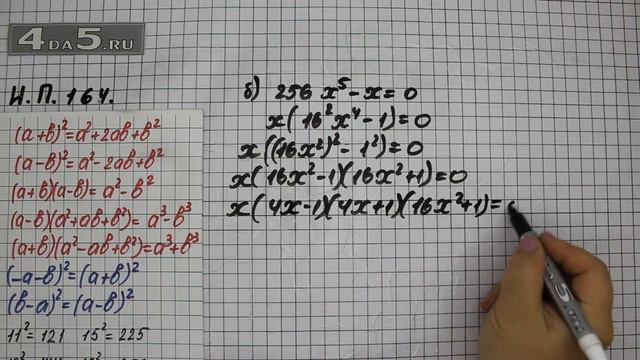 4DA5.RU
Н.П. 164.
(a+b)²=a²+2ab+b²
(a-b)²=a²-2ab+b²
(a+b)(a-b)=a²-b²
(a-b)(a²+ab+b²)=a³-b³
(a+b)(a²-ab+b²)=a³+b³
(-a-b)²=(a+b)²
(b-a)²=(a-b)²
11²=121 15²=225
б) 256x⁵-x=0
x(16²x⁴-1)=0
x((16x²)²-1²)=0
x(16x²-1)(16x²+1)=0
x(4x-1)(4x+1)(16x²+1)=